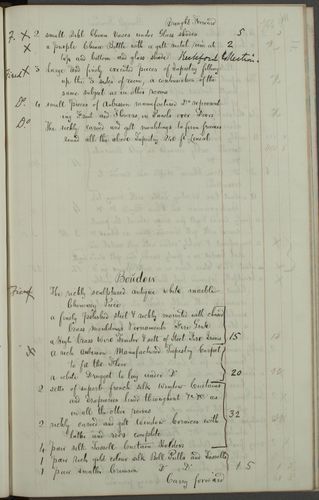 Brought Forward
F. X 2 small Oriental China Vases under Glass shades 5
X a purple China Bottle with a gilt metal rim at 2
top and bottom and glass shade Rutherford Collection.
X 3 large and finely executed pieces of tapestry filling
up the 3 sides of room, a continuation of the
same subject as in other rooms
Do 4 small pieces of Aubusson manufactured Do represent
ing Fruit and Flowers in Panels over Doors
Do The richly carved and gilt mouldings to form frames
round all the above tapestry 240 ft lineal
Boudoir
The richly sculptured antique white marble
Chimney Piece
a finely polished steel & richly mounted with chased
Brass mouldings & ornaments Fire Grate
a high Brass Wove Fender & sett of Steel Fire Irons 15
X a rich Aubusson Manufactured Tapestry Carpet
to fit the Floor
a white Drugget to lay under Do 20
2 setts of superb french silk Window Curtains
and Draperies lined throughout &c &c as
in all the other rooms
2 richly carved and gilt Window Cornices with 32
laths and rods complete
4 pair silk Tassell Curtain Holders
1 pair rich gold colour silk Bell Pulls and Tassells
1 pair smaller Crimson Do Do 1.5
Carry forward